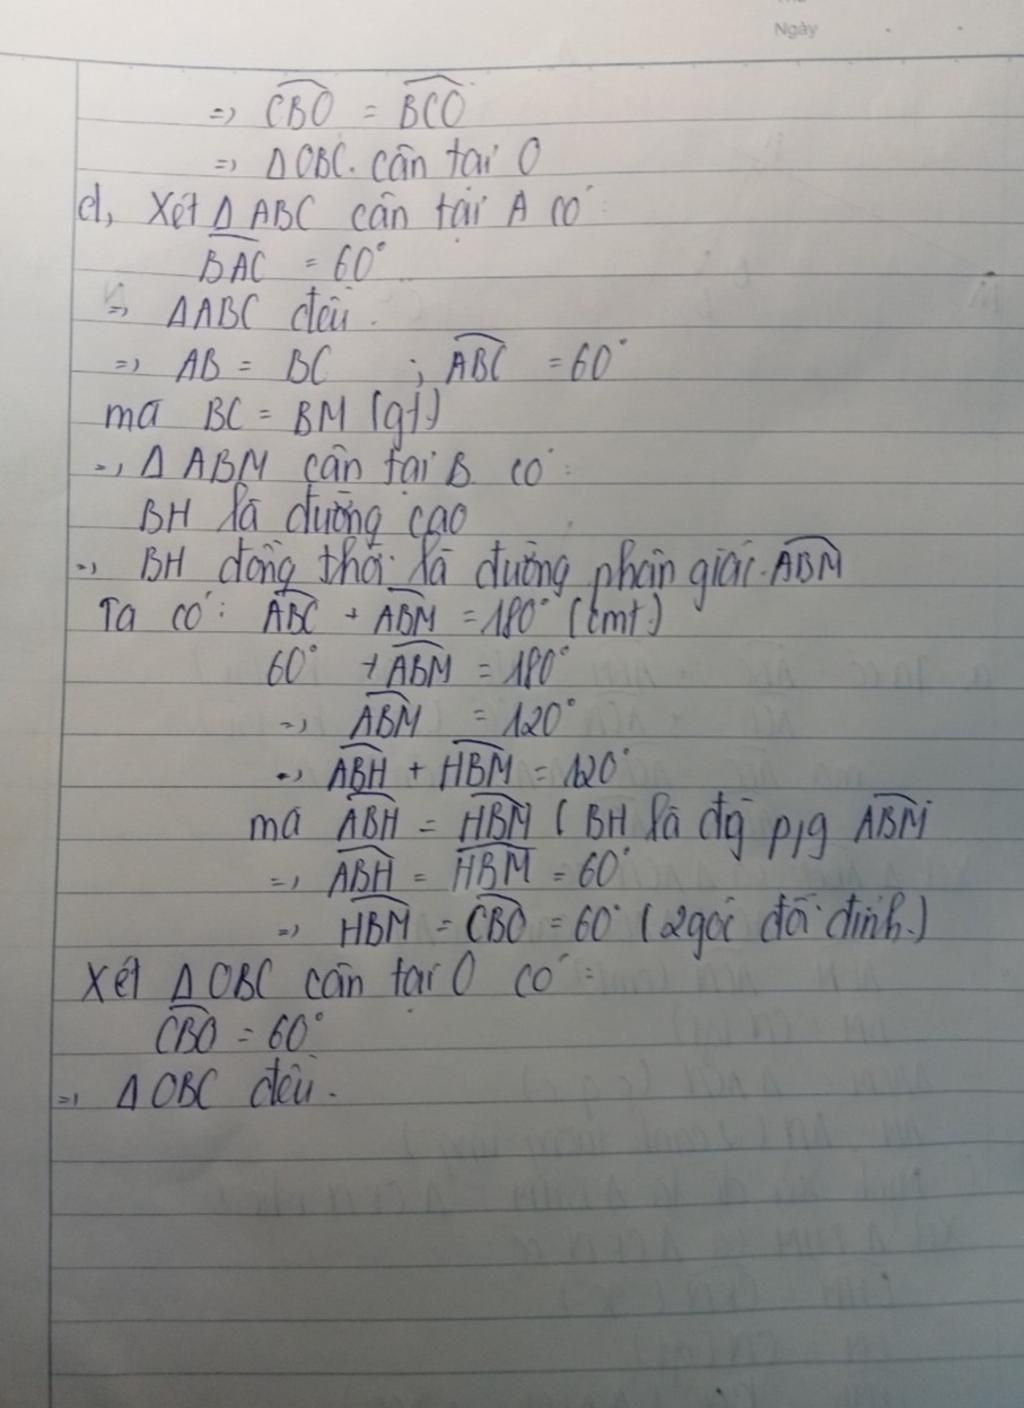 Ngày
=> CBO = BCO
=> ΔOBC. cân tại O
d, Xét Δ ABC cân tại A có
BAC = 60°
=> ΔABC đều.
=> AB = BC ; ABC = 60°
mà BC = BM (gt)
=> Δ ABM cân tại B. có:
BH là đường cao
=> BH đồng thời là đường phân giác. ABM
Ta có: ABC + ABM = 180° (cmt)
60° + ABM = 180°
=> ABM = 120°
=> ABH + HBM = 120°
mà ABH = HBM ( BH là đg p/g ABM
=> ABH = HBM = 60°
=> HBM = CBO = 60° (2góc đối đỉnh.)
Xét Δ OBC cân tại O có:
CBO = 60°
=> Δ OBC đều.